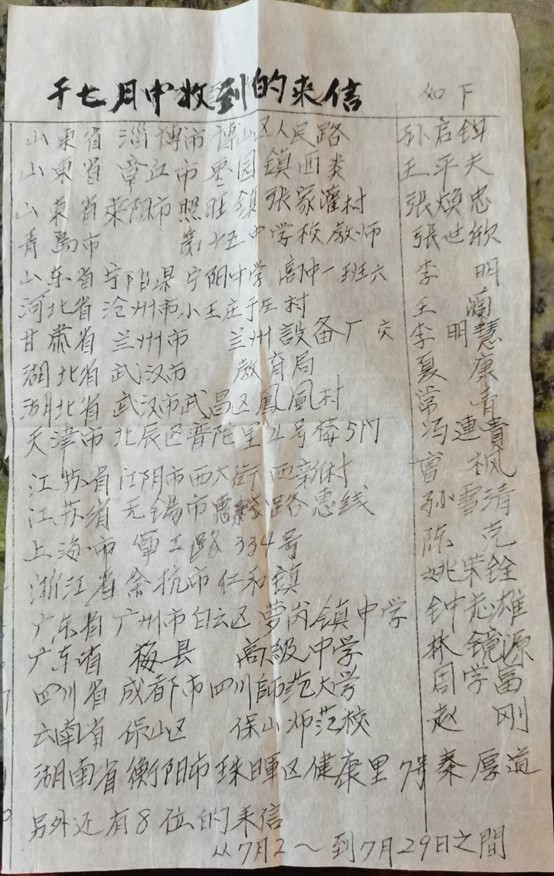 于七月中收到的来信 如下
山東省 淄博市 博山区人民路 孙启铒
山東省 章江市 枣园镇西麦 王平夫
山東省 莱阳市 照旺镇 张家灌村 张焕忠
青島市 第十五中学校教师 张世欣
山东省宁阳县宁阳中学 高中一班六 李明
河北省 沧州市小王庄于左村 王蘭
甘肃省 兰州市 兰州設备厂 交 李明慧
湖北省 武汉市 教育局 夏康
湖北省 武汉市武昌区鳳凰村 常青
天津市 北辰区普陀里 号楼5门 冯連貴
江苏省 江阴市西大街 西新村 枫
江苏省 无锡市 路惠线 孙雪清
上海市 军工路 334号 陈克
浙江省 余杭市仁和镇 姚荣铨
广东省 广州市白云区 萝岗镇中学 钟志雄
广东省 梅县 高級中学 林镜源
四川省 成都市四川師范大学 周学富
云南省 保山区 保山师范校 赵刚
湖南省衡阳市珠暉区健康里 7号 秦厚道
另外还有8位的来信
从7月2～到7月29日之間